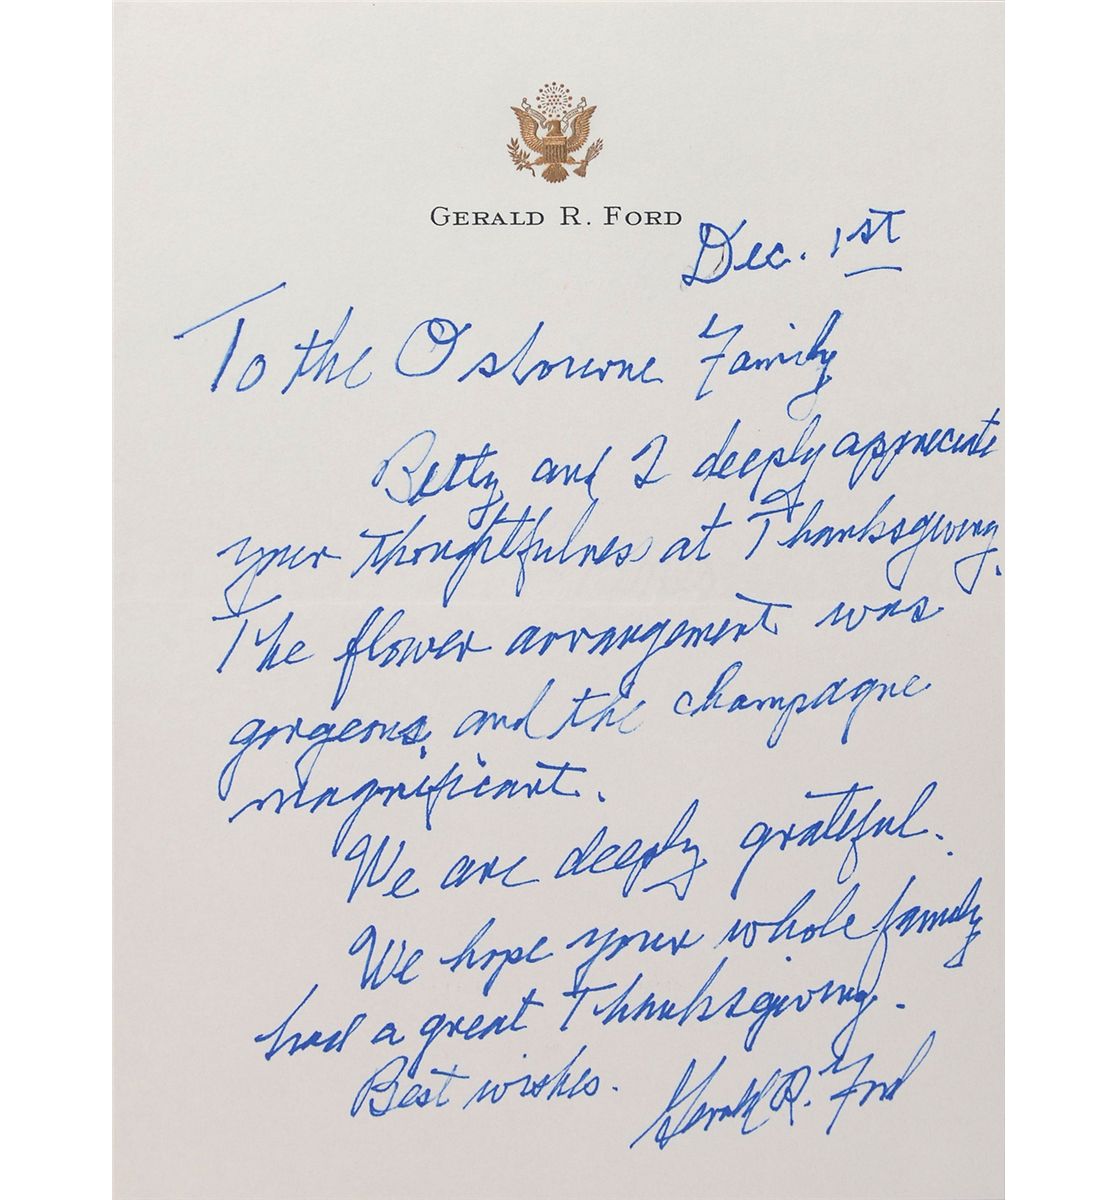 GERALD R. FORD
Dec. 1st
To the Osbourne Family
Betty and I deeply appreciate
your thoughtfulness at Thanksgiving.
The flower arrangement was
gorgeous, and the champagne
magnificant.
We are deeply grateful.
We hope your whole family
had a great Thanksgiving.
Best wishes.
Gerald R. Ford